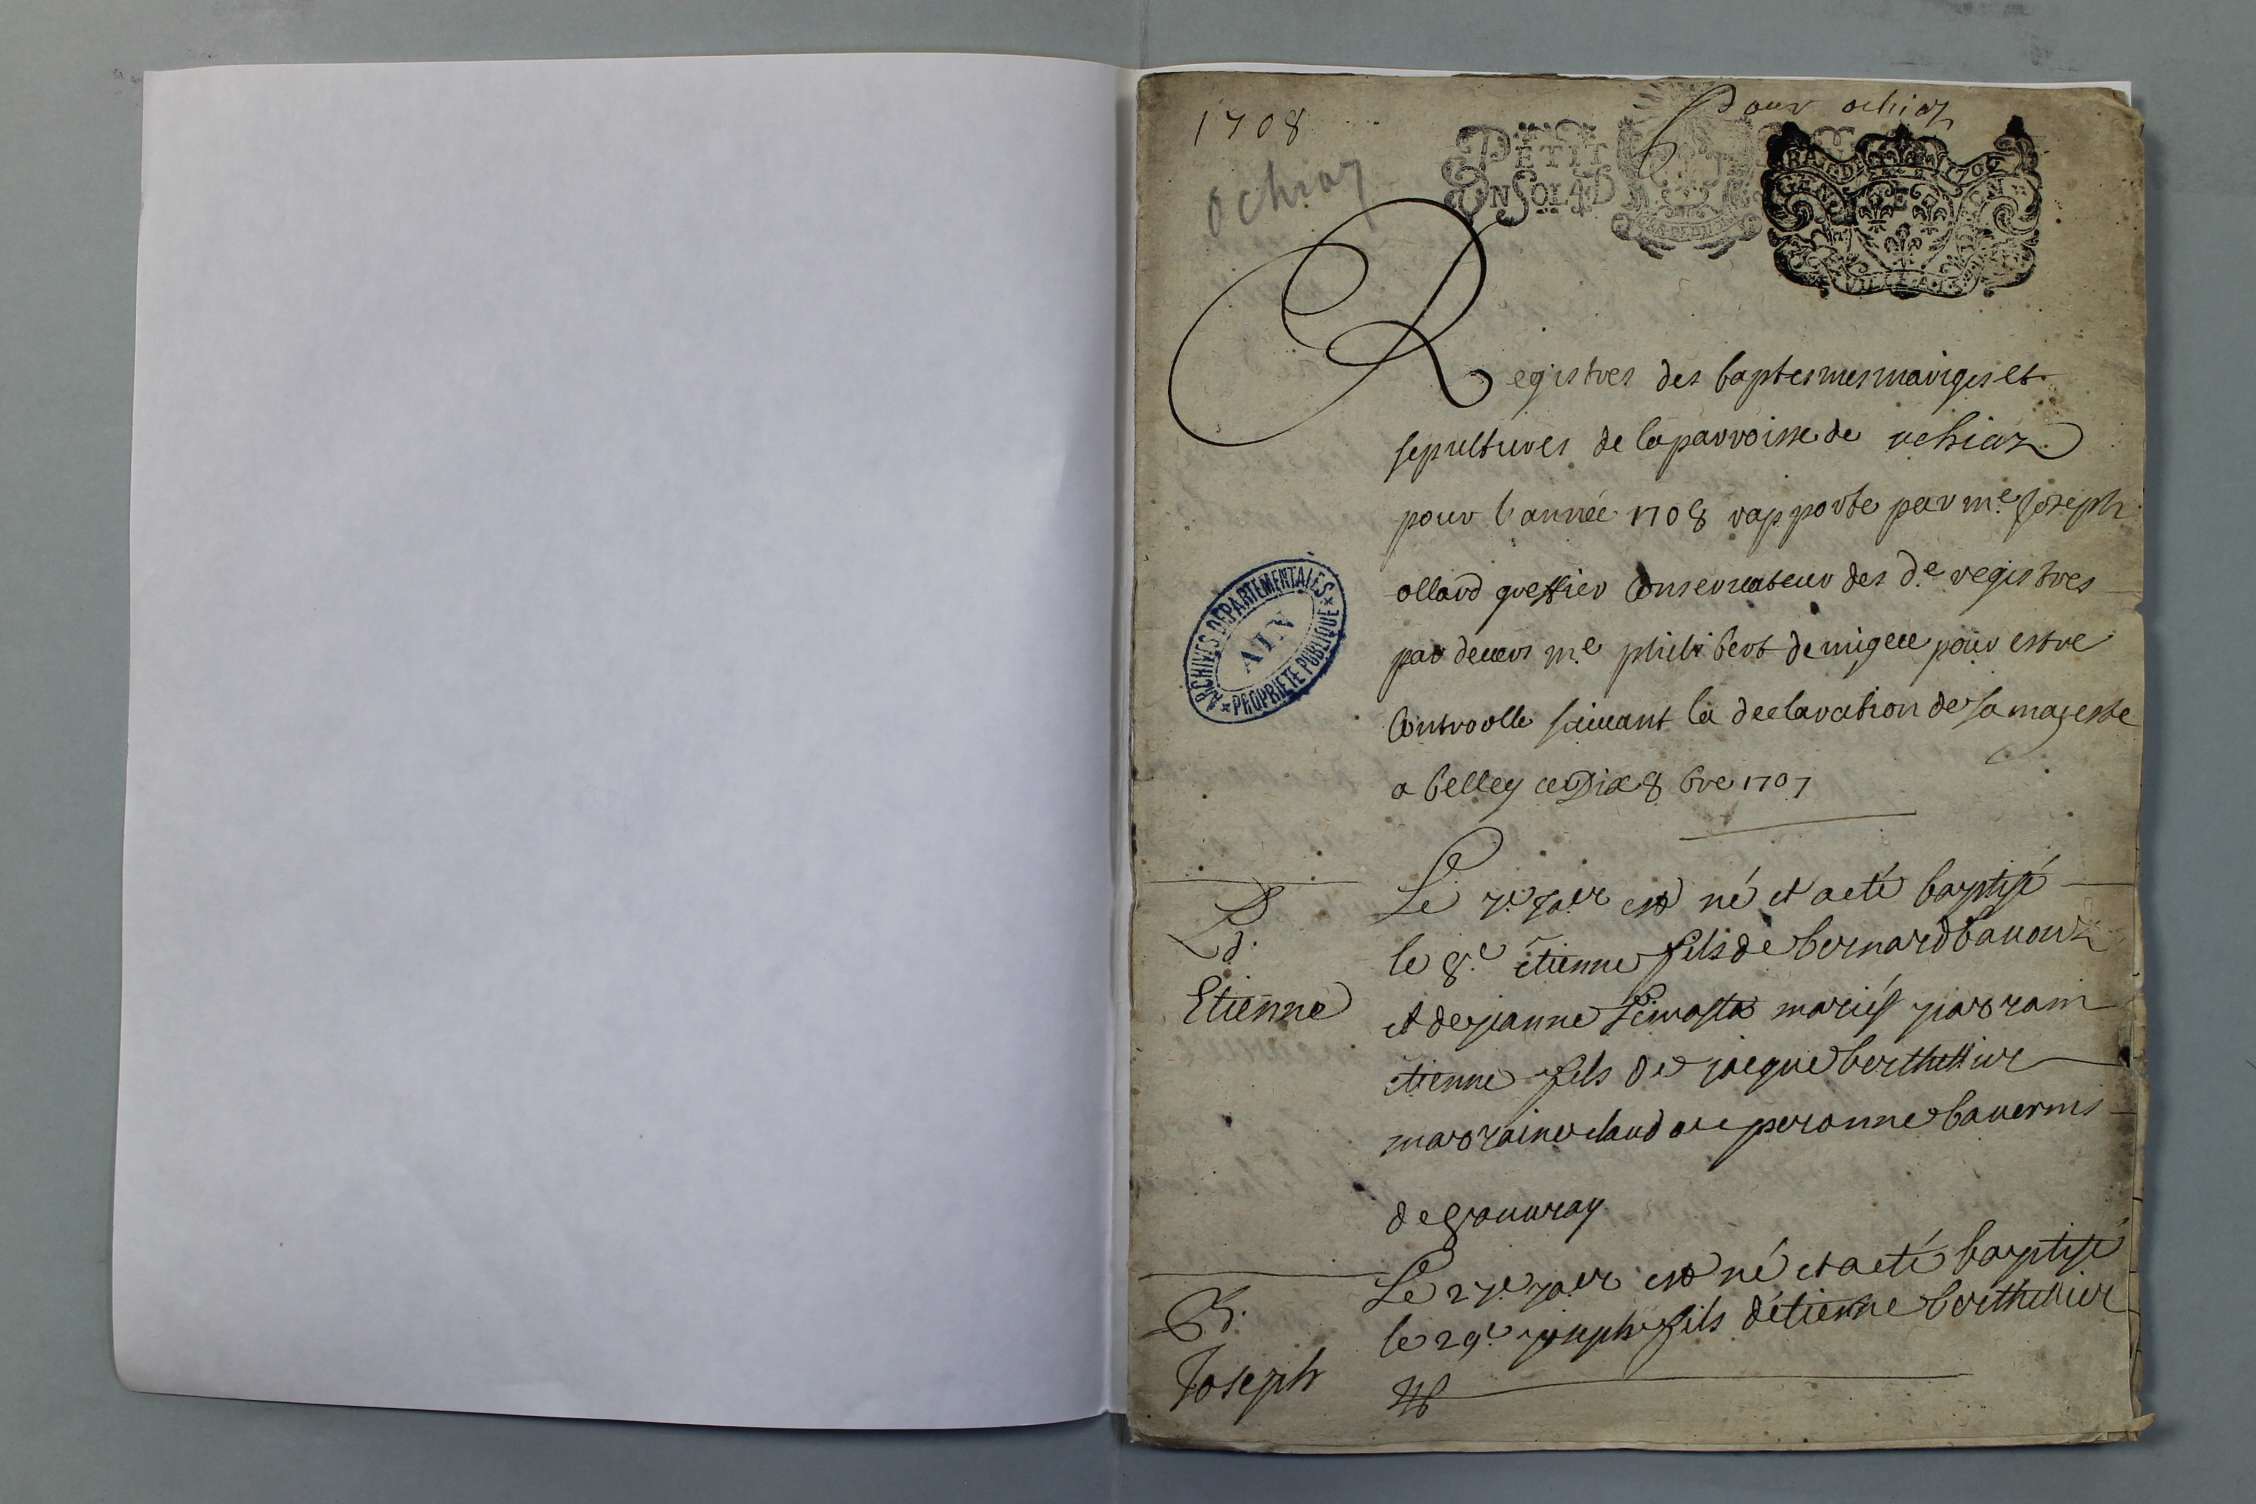 1708
Pour ochiaz
ochiaz
PETIT
EN SOL 4 D
GENERALITE
Registres des baptesmes mariges et
sepultures de la parroisse de ochiaz
pour l'année 1708 rapporte par me Joseph
ollard greffier Conservateur des de registres
par devers me philibert de migieu pour estre
Controolle suivant la declaration de sa mageste
a belley ce Dix 8bre 1707
ARCHIVES DEPARTEMENTALES
AIN
PROPRIETE PUBLIQUE
Le 7e Jaer est né et a eté baptisé
B.
le 8e etienne fils de bernard
Etienne
et de jeanne mariés parrain
etienne fils de jacque berthellier
marraine clauda peronne
de
Le 27e jaer est né et a eté baptisé
B.
le 29e joseph fils d'étienne berthellier
Joseph